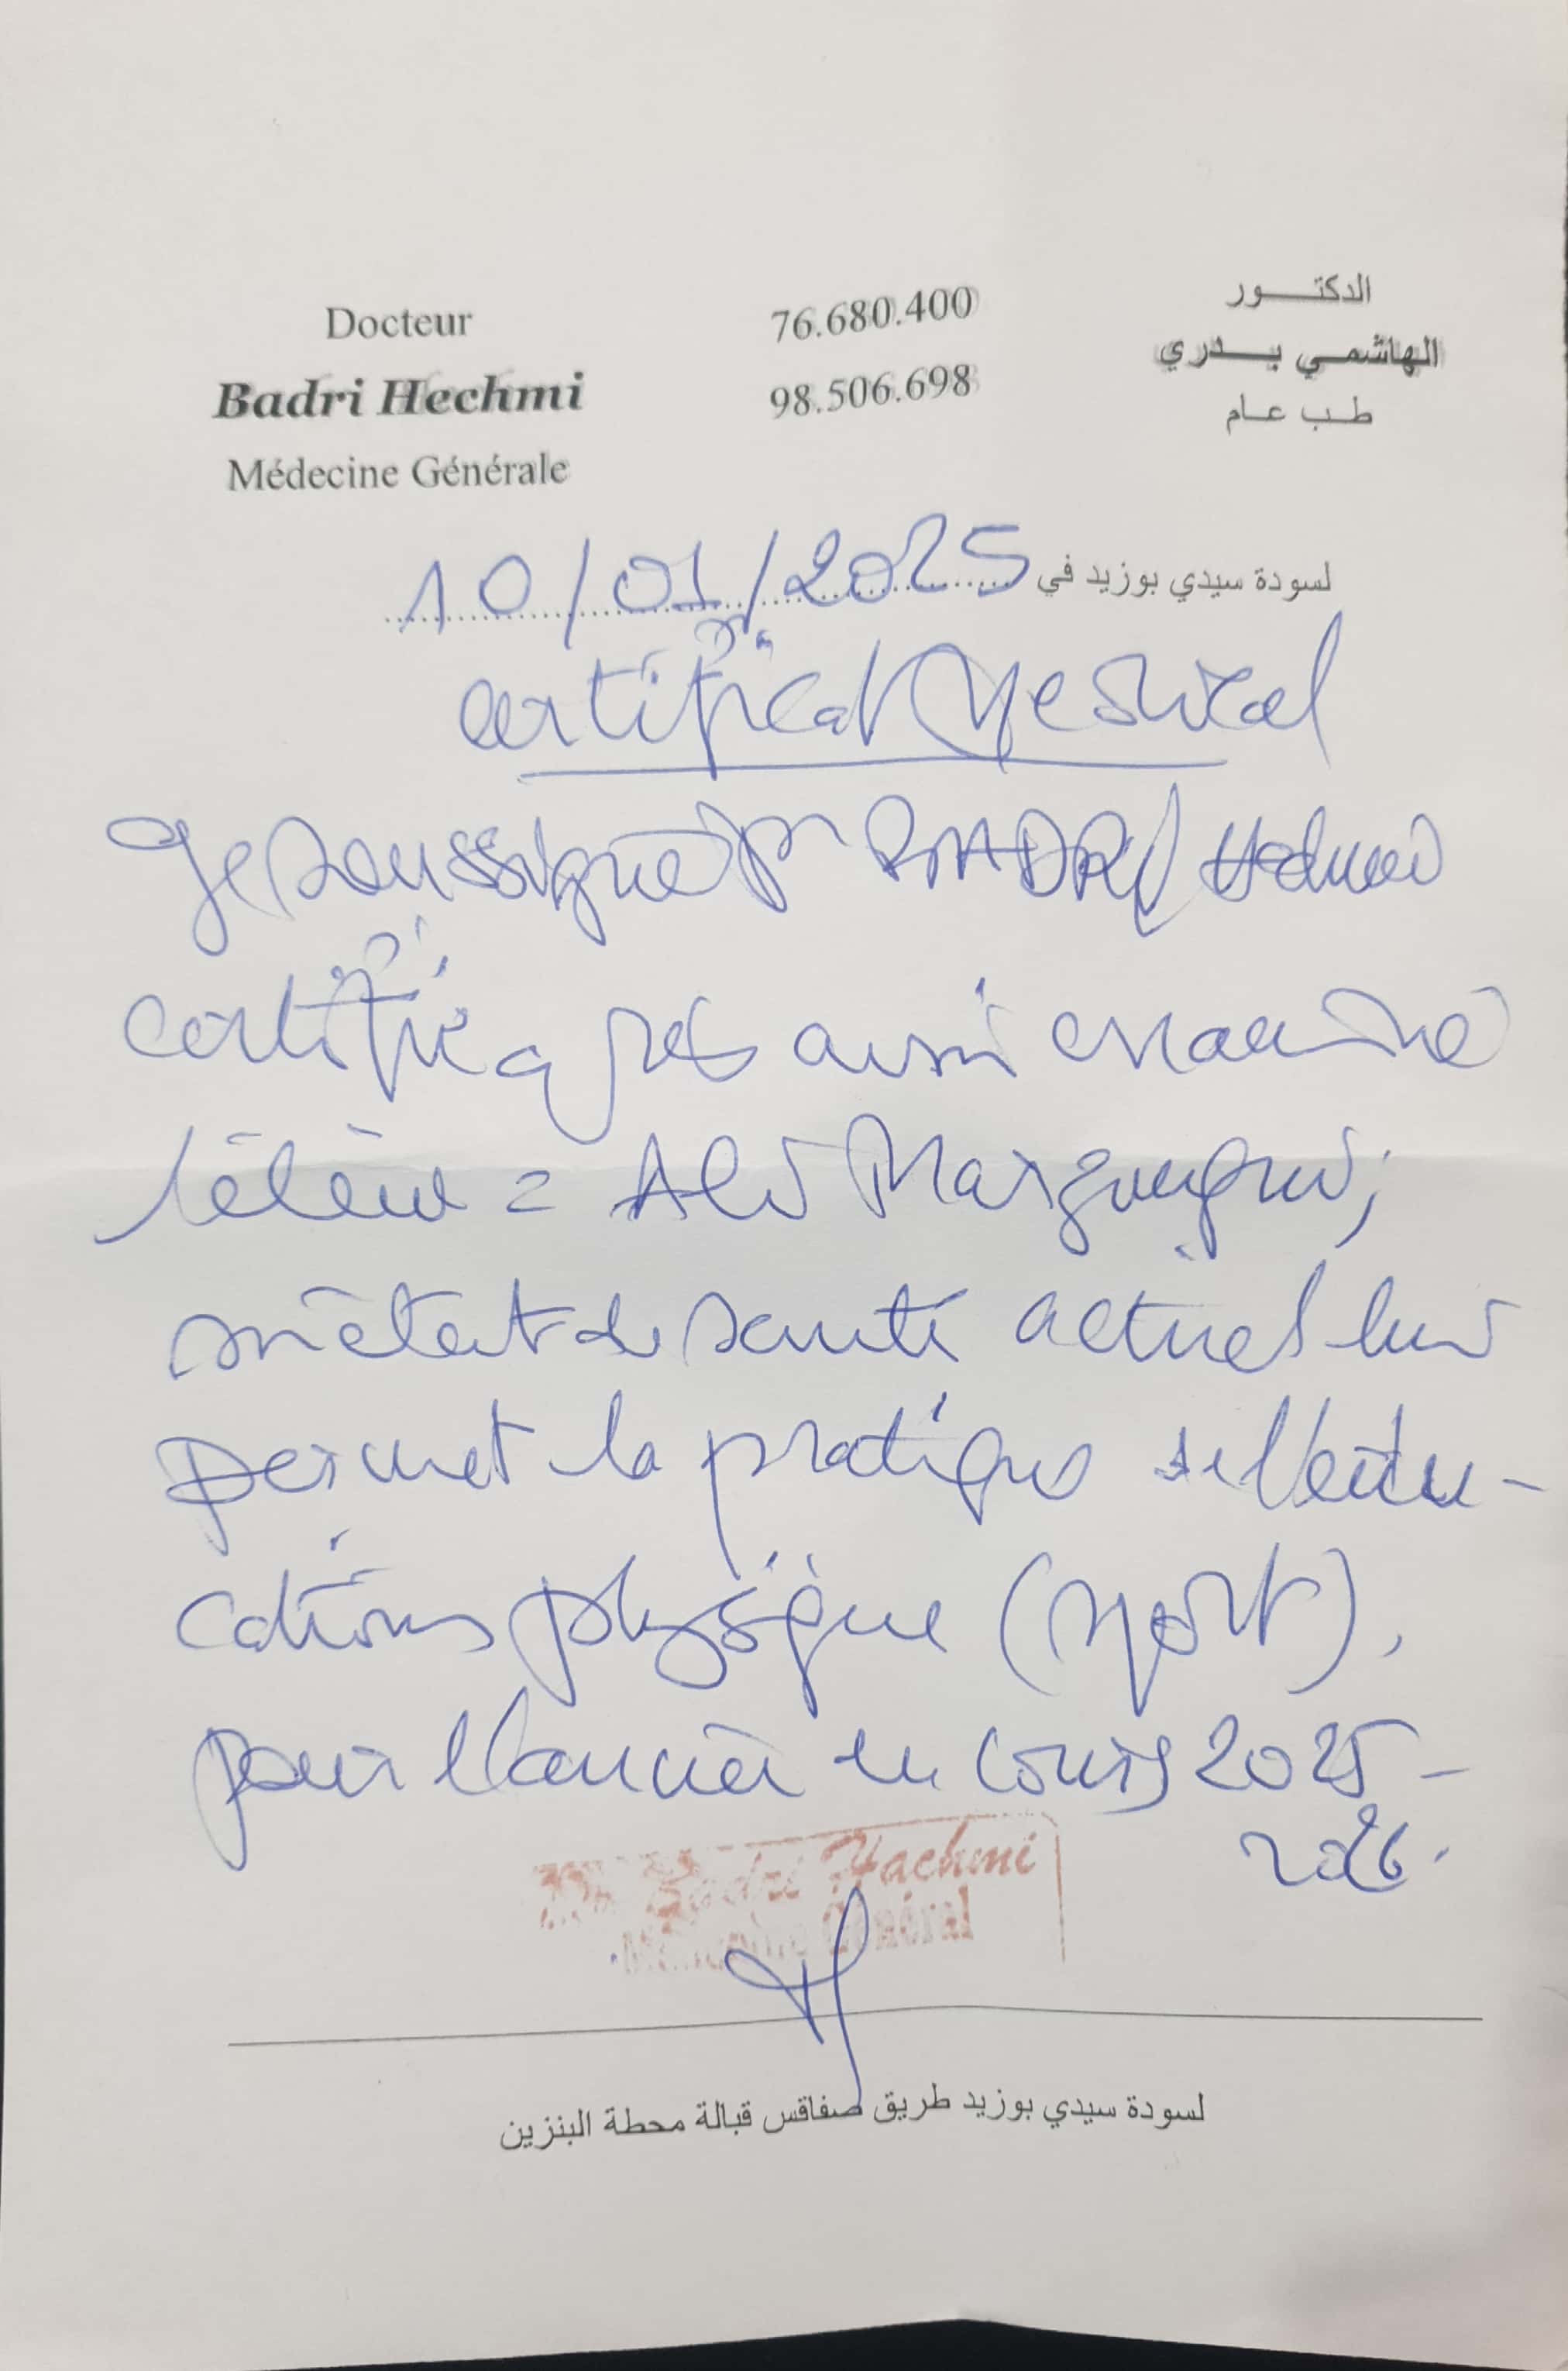 Docteur
Badri Hechmi
Médecine Générale
76.680.400
98.506.698
الدكتور
الهاشمي بدري
طب عام
لسودة سيدي بوزيد في 10/01/2025
Certificat Medical
Je soussigné Dr BADRI Hechmi
certifie après avoir examiné
l'élève = Ali
son état de santé actuel lui
permet la pratique de l'édu-
cations physique (sport).
pour l'année en cours 2025-
2026.
Dr Badri Hachmi
Médecine Général
لسودة سيدي بوزيد طريق صفاقس قبالة محطة البنزين